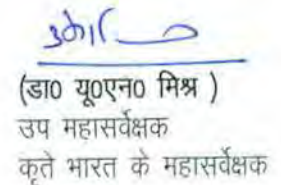 (डा0 यू0एन0 मिश्र )
उप महासर्वेक्षक
कृते भारत के महासर्वेक्षक